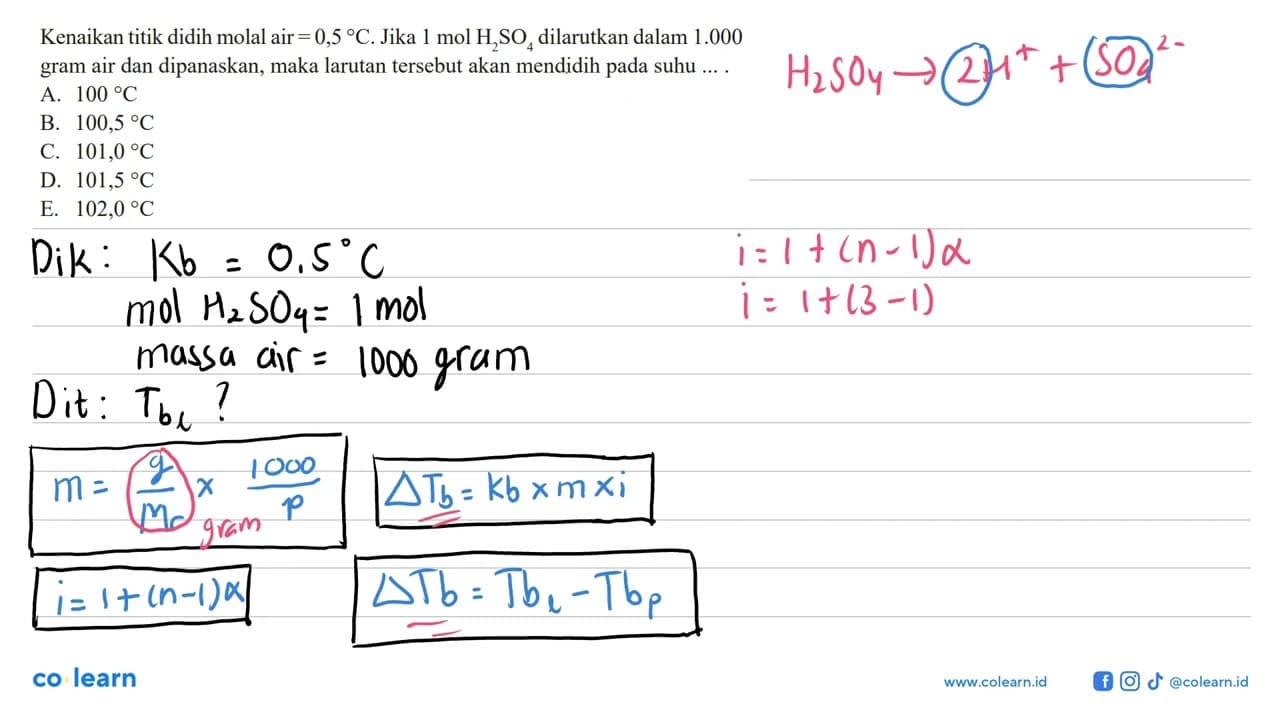 Kenaikan titik didih molal air = 0,5 °C. Jika 1 mol H₂SO₄ dilarutkan dalam 1.000
gram air dan dipanaskan, maka larutan tersebut akan mendidih pada suhu ... .
A. 100 °C
B. 100,5 °C
C. 101,0 °C
D. 101,5 °C
E. 102,0 °C
H₂SO₄ → 2H⁺ + SO₄²⁻
Dik: Kb = 0.5°C
mol H₂SO₄ = 1 mol
massa air = 1000 gram
Dit: Tbl ?
m = g/Mr x 1000/p
gram
ΔTb = Kb x m x i
i = 1 + (n-1)α
ΔTb = Tbl - Tbp
i = 1 + (n-1)α
i = 1 + (3-1)
co learn
www.colearn.id
@colearn.id